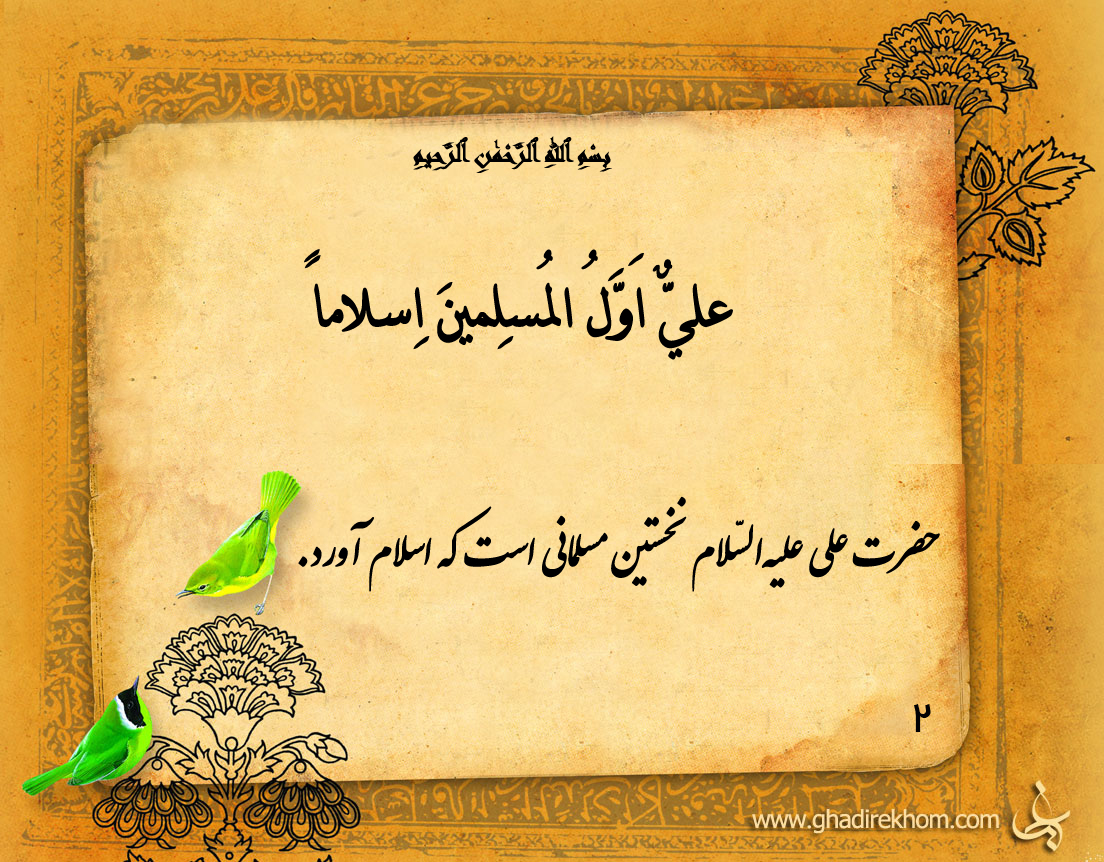 بِسْمِ ٱللَّهِ ٱلرَّحْمَٰنِ ٱلرَّحِيمِ
عليٌّ اَوَّلُ المُسلِمينَ اِسلاماً
حضرت علی علیه‌السّلام نخستین مسلمانی است که اسلام آورد.
۲
www.ghadirekhom.com